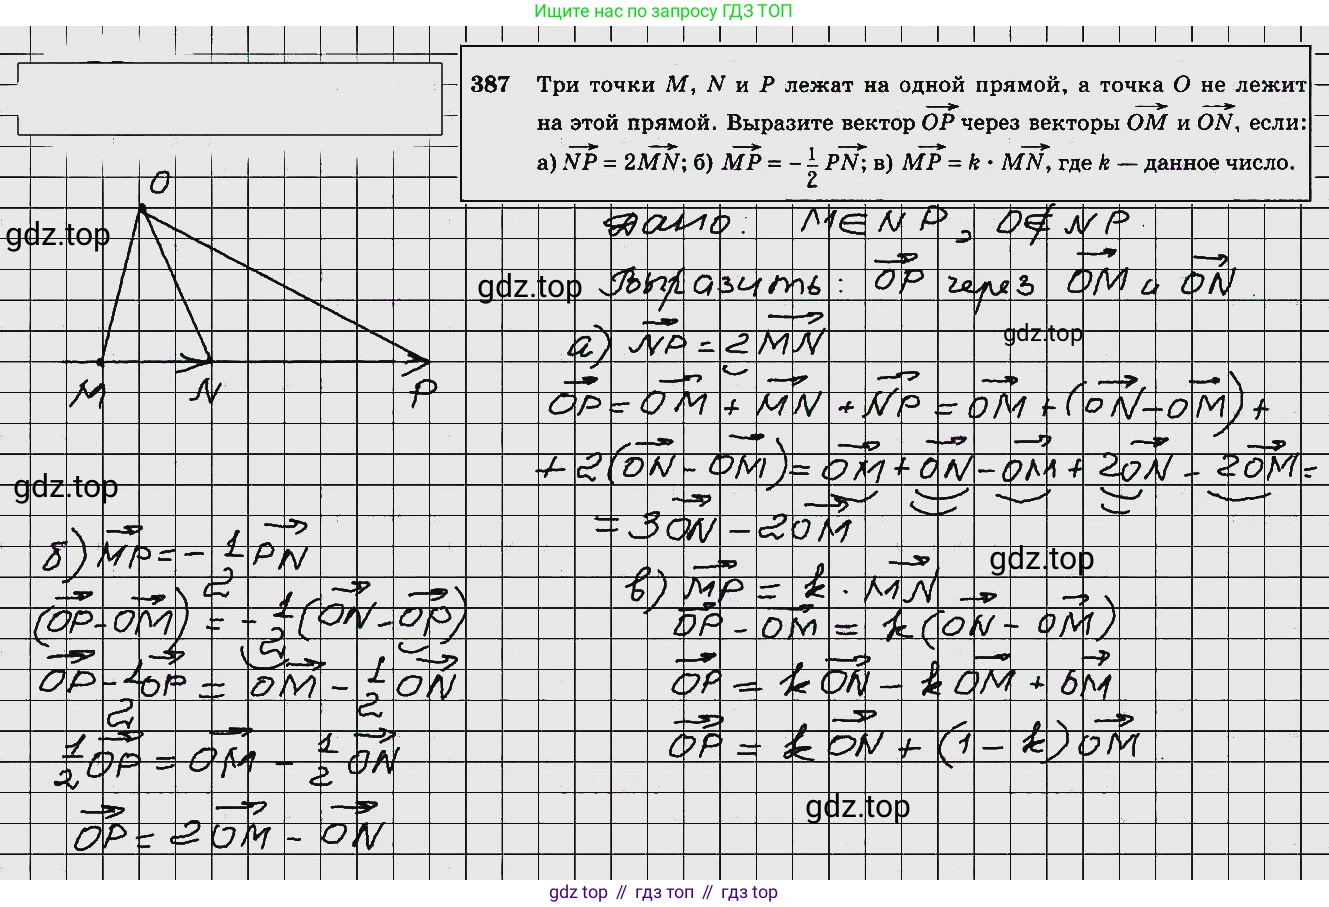 Ищите нас по запросу ГДЗ ТОП
387 Три точки M, N и P лежат на одной прямой, а точка O не лежит
на этой прямой. Выразите вектор OP→ через векторы OM→ и ON→, если:
а) NP→ = 2MN→; б) MP→ = -1/2 PN→; в) MP→ = k · MN→, где k — данное число.
O
M N P
gdz.top
Дано: M∈NP, O∉NP
gdz.top
Выразить: OP→ через OM→ и ON→
а) NP→ = 2MN→
gdz.top
OP→ = OM→ + MN→ + NP→ = OM→ + (ON→ - OM→) +
+ 2(ON→ - OM→) = OM→ + ON→ - OM→ + 2ON→ - 2OM→ =
= 3ON→ - 2OM→
gdz.top
б) MP→ = - 1/2 PN→
(OP→ - OM→) = - 1/2 (ON→ - OP→)
OP→ - 1/2 OP→ = OM→ - 1/2 ON→
1/2 OP→ = OM→ - 1/2 ON→
OP→ = 2OM→ - ON→
gdz.top
в) MP→ = k · MN→
OP→ - OM→ = k(ON→ - OM→)
OP→ = k ON→ - k OM→ + OM→
OP→ = k ON→ + (1 - k) OM→
gdz.top
gdz top // гдз топ // гдз top